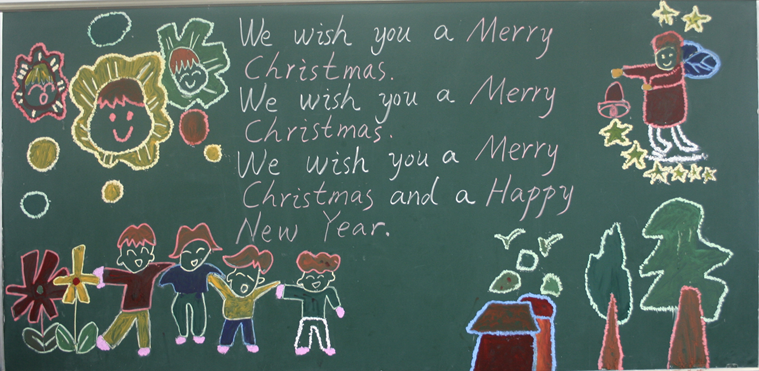 We wish you a Merry
Christmas.
We wish you a Merry
Christmas.
We wish you a Merry
Christmas and a Happy
New Year.